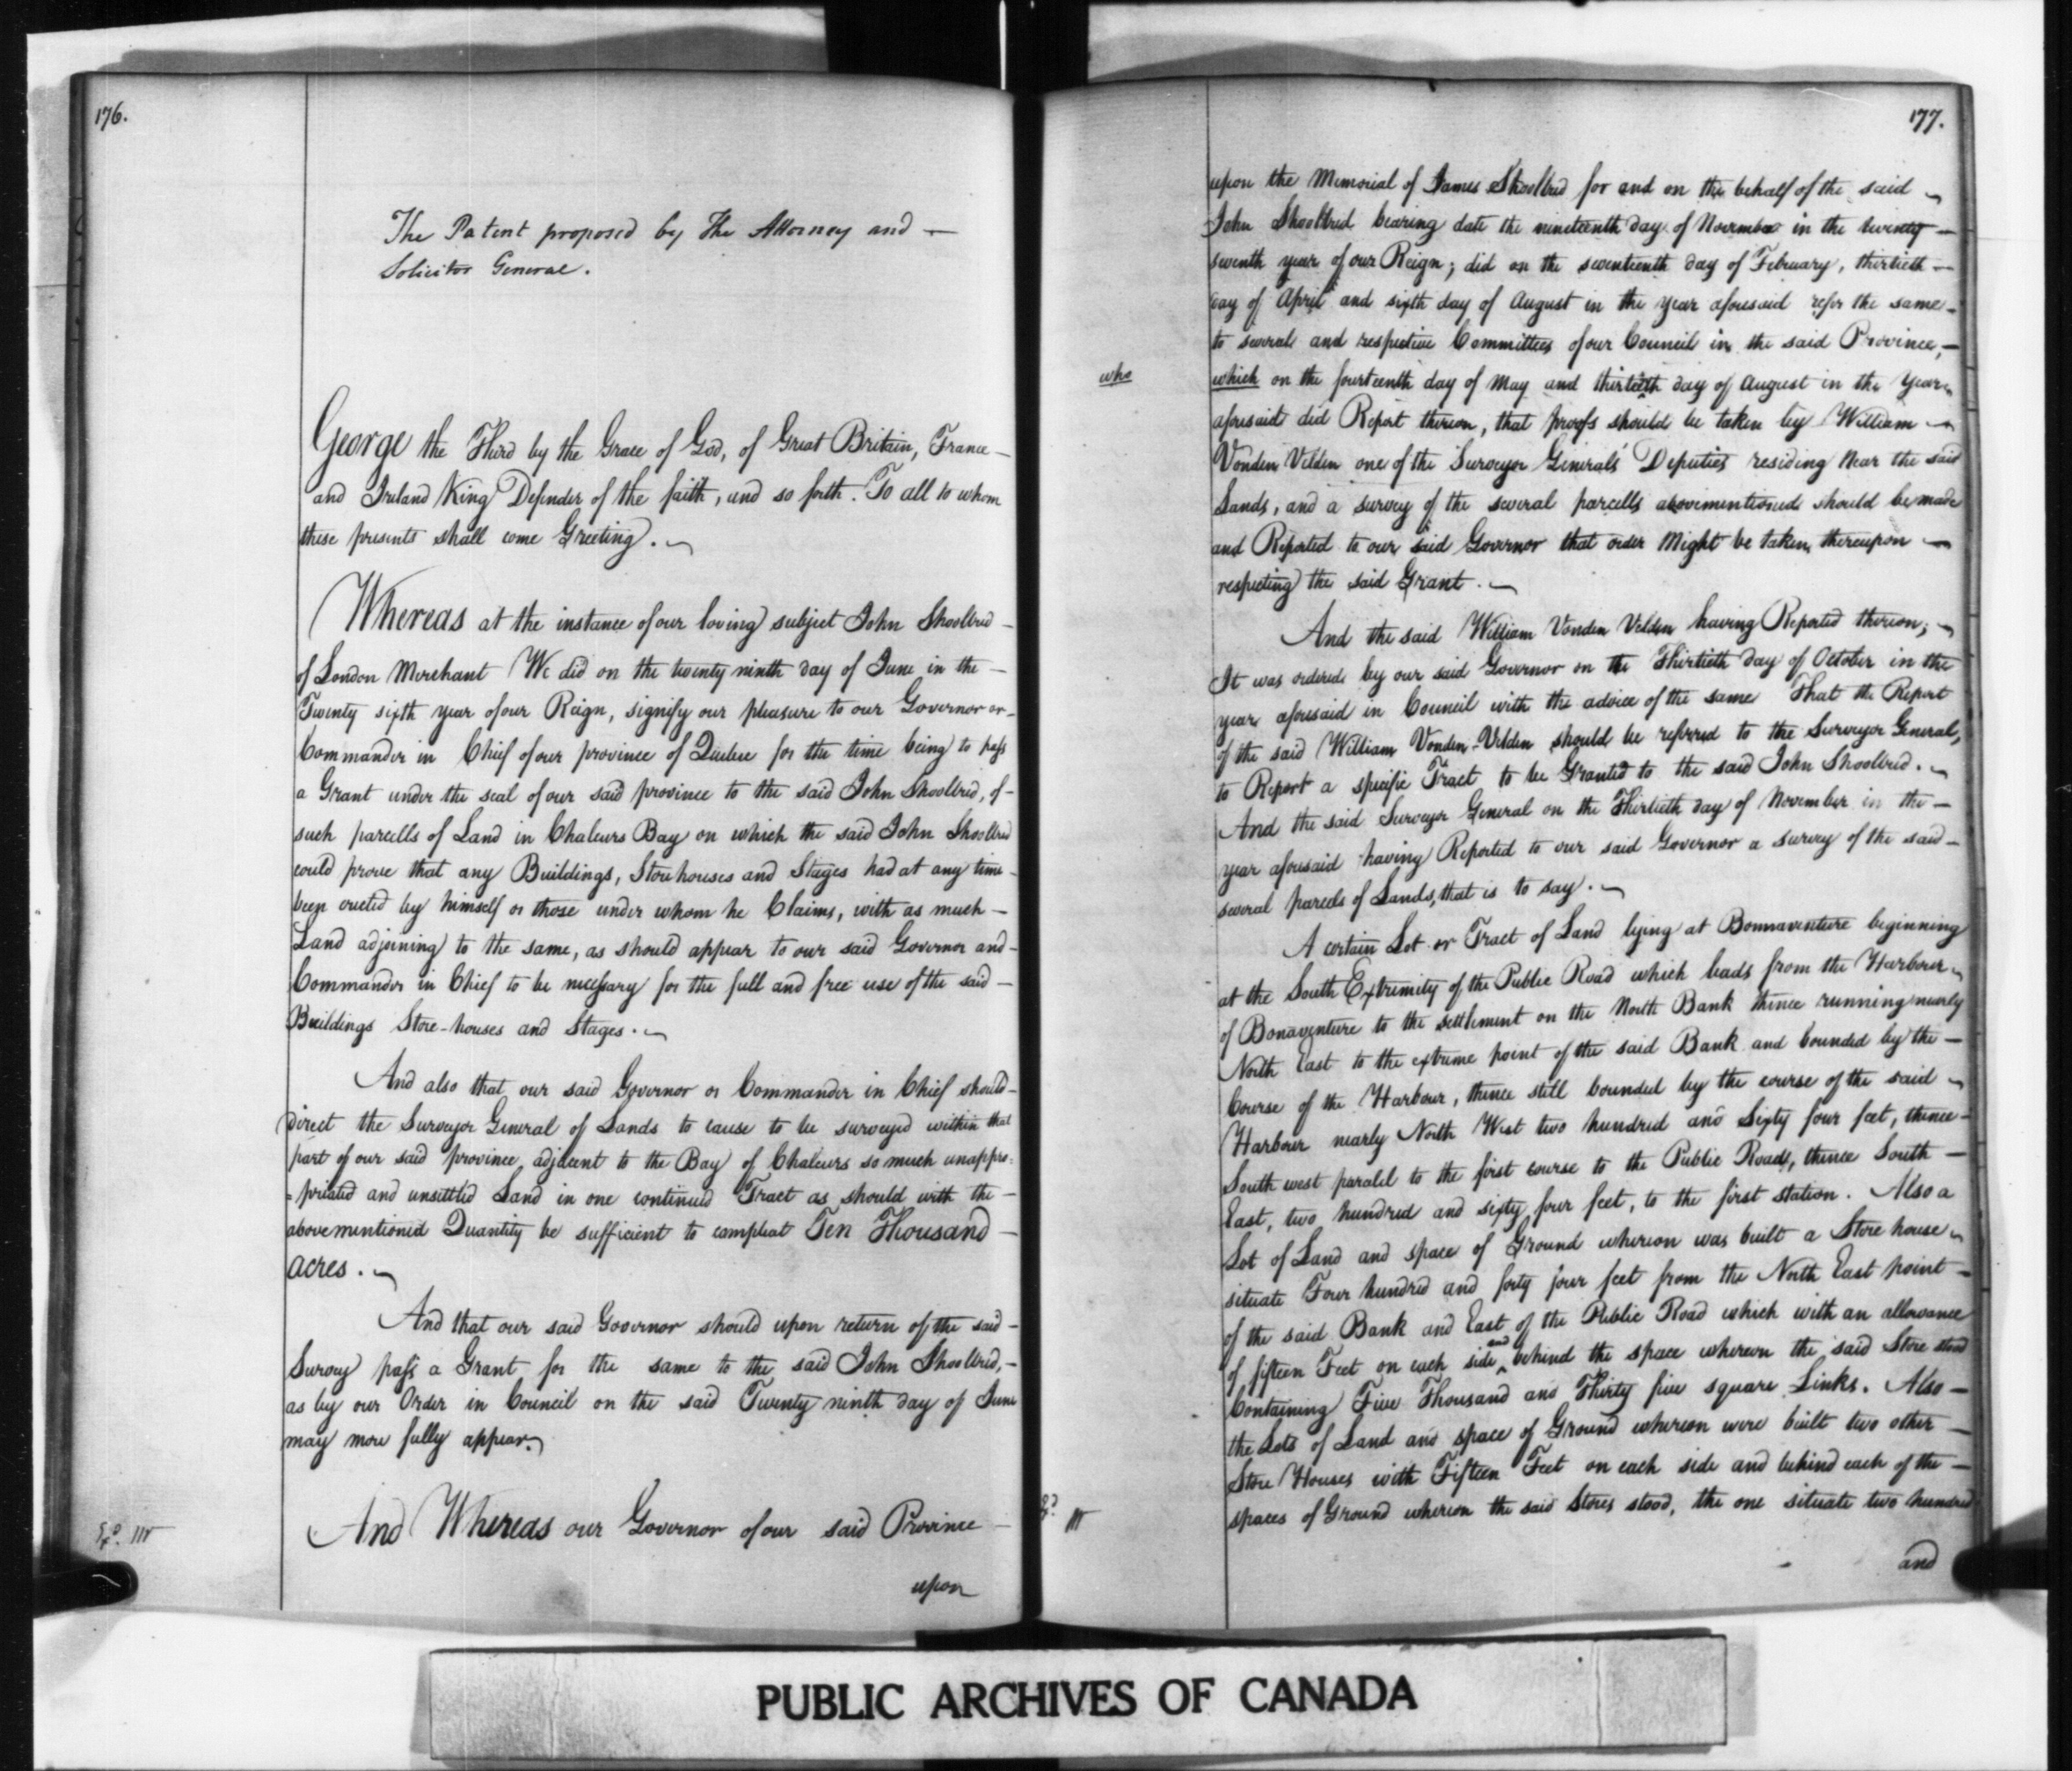 176.
The Patent proposed by The Attorney and —
Solicitor General.
George the Third by the Grace of God, of Great Britain, France —
and Ireland King Defender of the faith, and so forth. To all to whom
these presents shall come Greeting. —
Whereas at the instance of our loving subject John Shoolbred —
of London Merchant We did on the twenty ninth day of June in the —
Twenty sixth year of our Reign, signify our pleasure to our Governor or —
Commander in Chief of our province of Quebec for the time being to pass
a Grant under the seal of our said province to the said John Shoolbred, of —
such parcells of Land in Chaleurs Bay on which the said John Shoolbred
could prove that any Buildings, Storehouses and Stages had at any time —
been erected by himself or those under whom he Claims, with as much —
Land adjoining to the same, as should appear to our said Governor and —
Commander in Chief to be necessary for the full and free use of the said —
Buildings Store-houses and Stages. —
And also that our said Governor or Commander in Chief should —
direct the Surveyor General of Lands to cause to be surveyed within that
part of our said province adjacent to the Bay of Chaleurs so much unappro=
=priated and unsettled Land in one continued Tract as should with the —
abovementioned Quantity be sufficient to compleat Ten Thousand —
acres. —
And that our said Governor should upon return of the said —
Survey pass a Grant for the same to the said John Shoolbred, —
as by our Order in Council on the said Twenty ninth day of June
may more fully appear. —
And Whereas our Governor of our said Province —
upon
177.
upon the Memorial of James Shoolbred for and on the behalf of the said —
John Shoolbred bearing date the nineteenth day of November in the twenty —
seventh year of our Reign; did on the seventeenth day of February, thirtieth —
day of April and sixth day of August in the year aforesaid refer the same —
to several and respective Committees of our Council in the said Province, —
who
which on the fourteenth day of May and thirtieth day of August in the Year —
aforesaid did Report thereon, that proofs should be taken by William —
Vonden Velden one of the Surveyor General's Deputies residing Near the said
Lands, and a survey of the several parcells abovementioned should be made
and Reported to our said Governor that order Might be taken thereupon —
respecting the said Grant. —
And the said William Vonden Velden having Reported thereon; —
It was ordered by our said Governor on the Thirtieth day of October in the
year aforesaid in Council with the advice of the same That the Report
of the said William Vonden-Velden should be referred to the Surveyor General,
to Report a specific Tract to be Granted to the said John Shoolbred. —
And the said Surveyor General on the Thirtieth day of November in the —
year aforesaid having Reported to our said Governor a survey of the said —
several parcels of Lands, that is to say. —
A certain Lot or Tract of Land lying at Bonnaventure beginning
at the South Extremity of the Public Road which leads from the Harbour —
of Bonaventure to the settlement on the North Bank thence running nearly
North East to the extreme point of the said Bank and bounded by the —
Course of the Harbour, thence still bounded by the course of the said —
Harbour nearly North West two hundred and Sixty four feet, thence —
South west paralel to the first course to the Public Road, thence South —
East, two hundred and sixty four feet, to the first station. Also a
Lot of Land and space of Ground whereon was built a Store house —
situate Four hundred and forty four feet from the North East point —
of the said Bank and East of the Public Road which with an allowance
of fifteen Feet on each side and behind the space whereon the said Store stood
Containing Five Thousand and Thirty five square Links. Also —
the Lots of Land and space of Ground whereon were built two other —
Store Houses with Fifteen Feet on each side and behind each of the —
spaces of Ground whereon the said Stores stood, the one situate two hundred
and
PUBLIC ARCHIVES OF CANADA